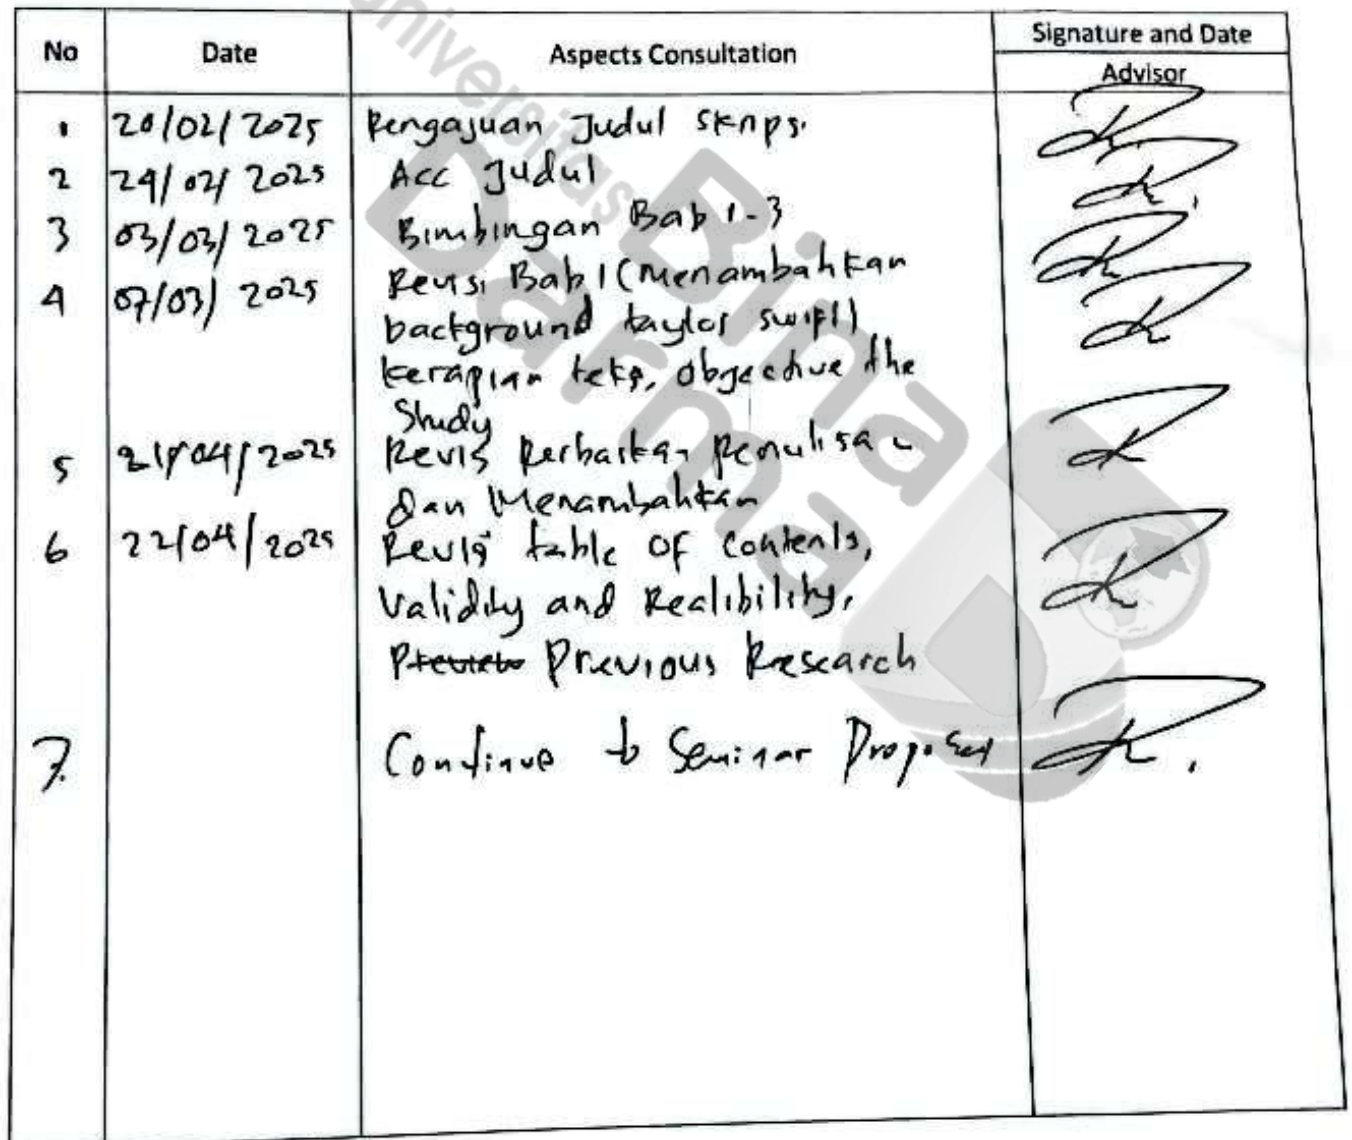 Universitas
Bina
Darma
No Date Aspects Consultation Signature and Date
Advisor
1 20/02/2025 Pengajuan Judul Skripsi
2 24/02/2025 Acc Judul
3 03/03/2025 Bimbingan Bab 1-3
4 07/03/2025 Revisi Bab 1 (Menambahkan
background taylor swift)
kerapian teks, objective the
Study
5 21/04/2025 Revisi Perbaikan Penulisan
dan Menambahkan
6 22/04/2025 Revisi table of contents,
Validity and Realibility,
Previous Research
7. Continue to Seminar Proposal